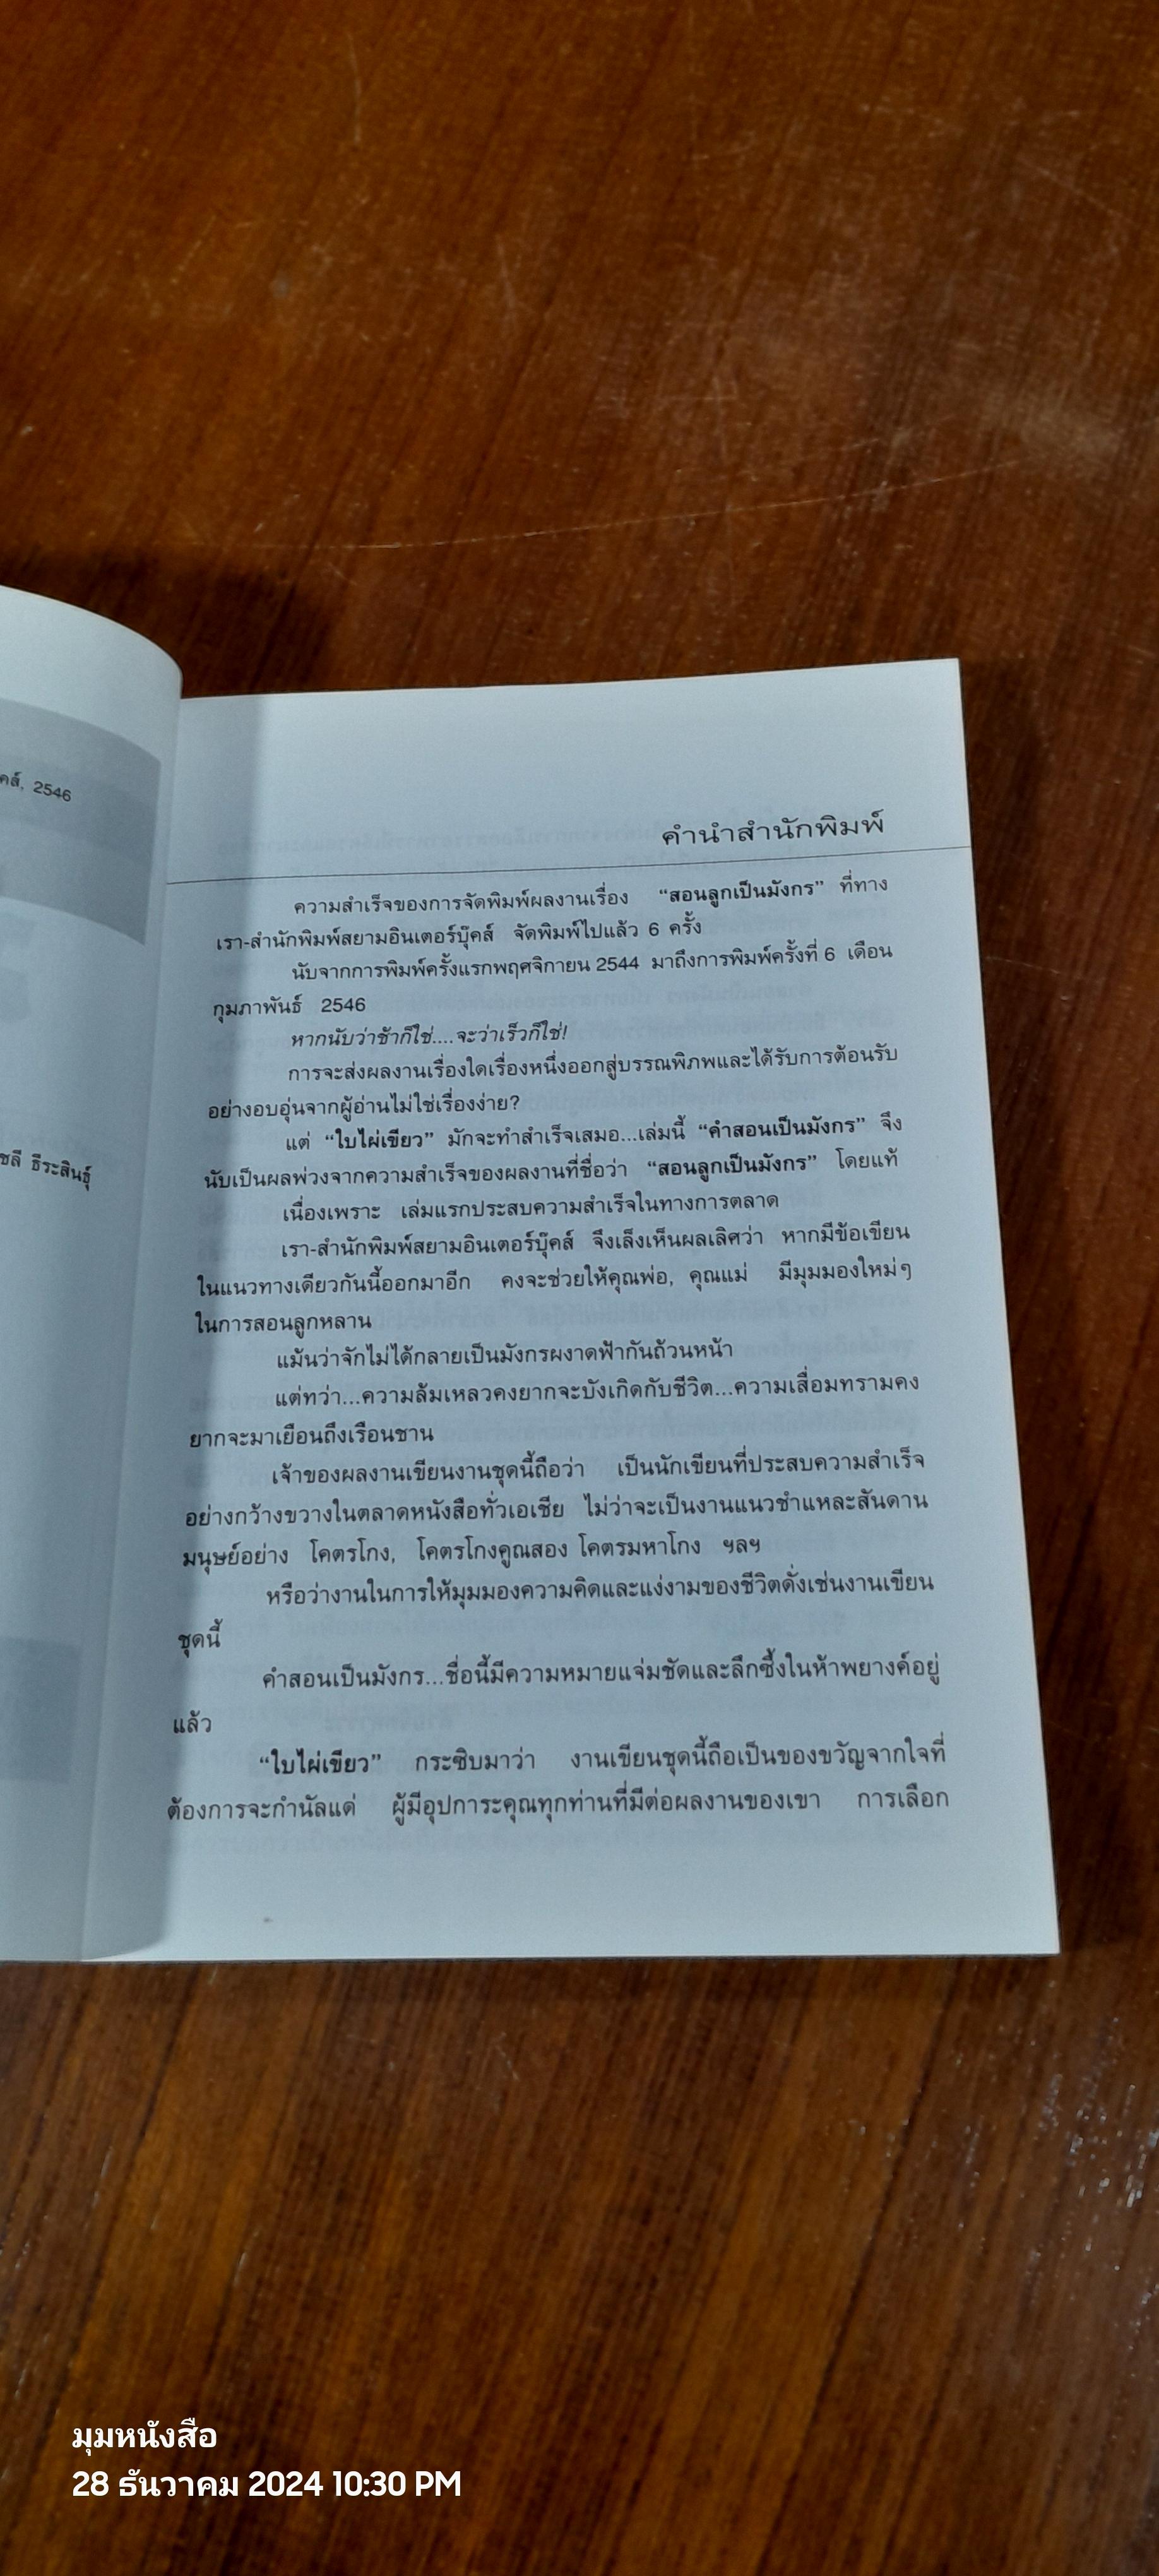 คส์, 2546
ชลี ธีระสินธุ์
คำนำสำนักพิมพ์
ความสำเร็จของการจัดพิมพ์ผลงานเรื่อง “สอนลูกเป็นมังกร” ที่ทาง
เรา-สำนักพิมพ์สยามอินเตอร์บุ๊คส์ จัดพิมพ์ไปแล้ว 6 ครั้ง
นับจากการพิมพ์ครั้งแรกพฤศจิกายน 2544 มาถึงการพิมพ์ครั้งที่ 6 เดือน
กุมภาพันธ์ 2546
หากนับว่าช้าก็ใช่....จะว่าเร็วก็ใช่!
การจะส่งผลงานเรื่องใดเรื่องหนึ่งออกสู่บรรณพิภพและได้รับการต้อนรับ
อย่างอบอุ่นจากผู้อ่านไม่ใช่เรื่องง่าย?
แต่ “ใบไผ่เขียว” มักจะทำสำเร็จเสมอ...เล่มนี้ “คำสอนเป็นมังกร” จึง
นับเป็นผลพ่วงจากความสำเร็จของผลงานที่ชื่อว่า “สอนลูกเป็นมังกร” โดยแท้
เนื่องเพราะ เล่มแรกประสบความสำเร็จในทางการตลาด
เรา-สำนักพิมพ์สยามอินเตอร์บุ๊คส์ จึงเล็งเห็นผลเลิศว่า หากมีข้อเขียน
ในแนวทางเดียวกันนี้ออกมาอีก คงจะช่วยให้คุณพ่อ, คุณแม่ มีมุมมองใหม่ๆ
ในการสอนลูกหลาน
แม้นว่าจักไม่ได้กลายเป็นมังกรผงาดฟ้ากันถ้วนหน้า
แต่ทว่า...ความล้มเหลวคงยากจะบังเกิดกับชีวิต...ความเสื่อมทรามคง
ยากจะมาเยือนถึงเรือนชาน
เจ้าของผลงานเขียนงานชุดนี้ถือว่า เป็นนักเขียนที่ประสบความสำเร็จ
อย่างกว้างขวางในตลาดหนังสือทั่วเอเชีย ไม่ว่าจะเป็นงานแนวชำแหละสันดาน
มนุษย์อย่าง โคตรโกง, โคตรโกงคูณสอง โคตรมหาโกง ฯลฯ
หรือว่างานในการให้มุมมองความคิดและแง่งามของชีวิตดั่งเช่นงานเขียน
ชุดนี้
คำสอนเป็นมังกร...ชื่อนี้มีความหมายแจ่มชัดและลึกซึ้งในห้าพยางค์อยู่
แล้ว
“ใบไผ่เขียว” กระซิบมาว่า งานเขียนชุดนี้ถือเป็นของขวัญจากใจที่
ต้องการจะกำนัลแด่ ผู้มีอุปการะคุณทุกท่านที่มีต่อผลงานของเขา การเลือก
มุมหนังสือ
28 ธันวาคม 2024 10:30 PM